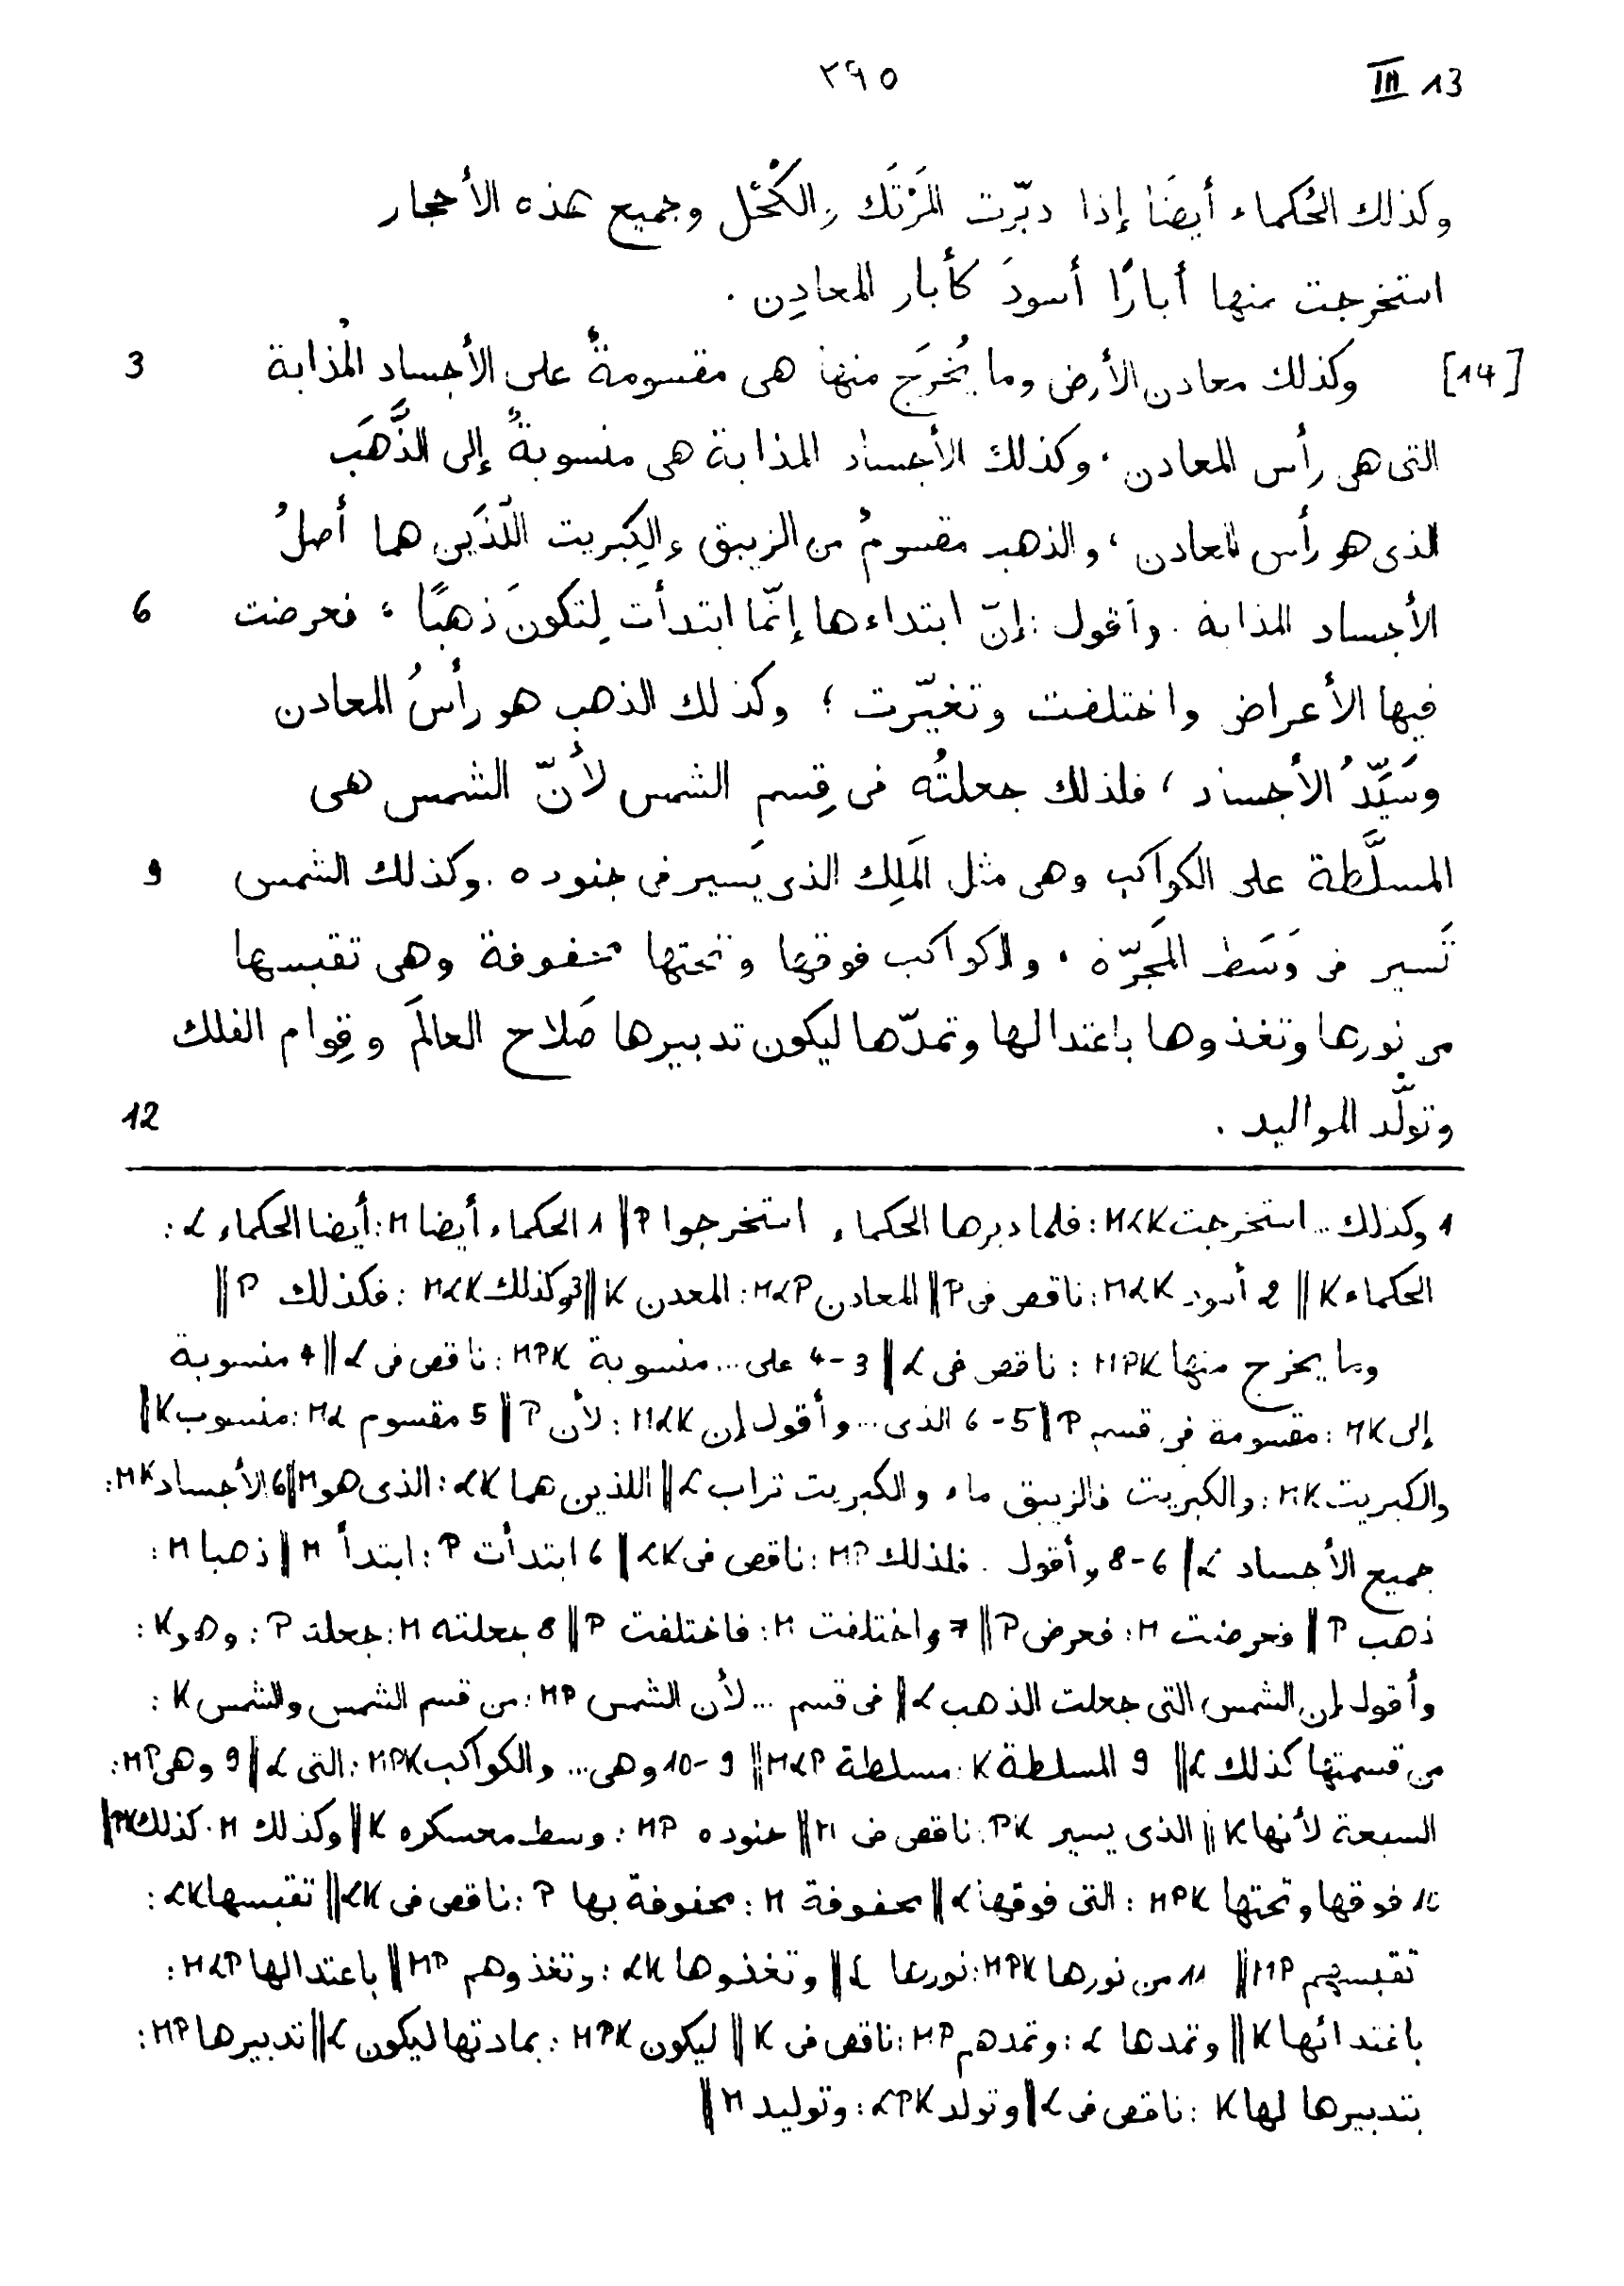 ٢٩٥ III 13
وكذلك الحُكماء أيضًا إذا دبّرت المَرْتَك والكُحْل وجميع هذه الأحجار
استخرجت منها أبارًا أسودَ كأبار المعادِن .
[14] وكذلك معادن الأرض وما يُخرَج منها هى مقسومةٌ على الأجساد المُذابة 3
التى هى رأس المعادن ، وكذلك الأجساد المذابة هى منسوبةٌ إلى الذَّهَب
الذى هو رأس المعادن ، والذهب مقسومٌ من الزيبق والكِبريت اللّذَين هما أصلُ
الأجساد المذابة . وأقول : إنّ ابتداءها إنّما ابتدأت لِتكونَ ذهبًا ، فعرضت 6
فيها الأعراض واختلفت وتغيّرت ؛ وكذلك الذهب هو رأسُ المعادن
وسَيّدُ الأجساد ، فلذلك جعلتُه فى قِسم الشمس لأنّ الشمس هى
المسلَّطة على الكواكب وهى مثل المَلِك الذى يَسير فى جنوده . وكذلك الشمس 9
تَسير فى وَسَط المَجَرّة ، والكواكب فوقها وتحتها محفوفة وهى تقبسها
من نورها وتغذوها باعتدالها وتمدّها ليكون تدبيرها صَلاح العالَم وقِوام الفلك
وتولُّد المواليد . 12
1 وكذلك ... استخرجت MLK : فلما دبرها الحكماء استخرجوا P || 1 الحكماء أيضا M : أيضا الحكماء L :
الحكماء K || 2 أسود MLK : ناقص فى P || المعادن MLP : المعدن K || 3 وكذلك MLK : فكذلك P ||
وما يخرج منها MPK : ناقص فى L || 3-4 على ... منسوبة MPK : ناقص فى L || 4 منسوبة
إلى MK : مقسومة فى قسم P || 5-6 الذى ... وأقول إن MLK : لأن P || 5 مقسوم ML : منسوب K ||
والكبريت MK : والكبريت فالزيبق ماء والكبريت تراب L || اللذين هما LK : الذى هو M || 6 الأجساد MK :
جميع الأجساد L || 6-8 وأقول . فلذلك MP : ناقص فى LK || 6 ابتدأت P : ابتدأ M || ذهبا M :
ذهب P || فعرضت M : فعرض P || 7 واختلفت M : فاختلفت P || 8 جعلته M : جعلت P : وهو K :
وأقول إن الشمس التى جعلت الذهب L || فى قسم ... لأن الشمس MP : من قسم الشمس والشمس K :
من قسمتها كذلك L || 9 المسلطة K : مسلطة MLP || 9-10 وهى ... والكواكب MPK : التى L || 9 وهى MP :
السبعة لأنها K || الذى يسير PK : ناقص فى M || جنوده MP : وسط معسكره K || وكذلك M : كذلك PK ||
10 فوقها وتحتها MPK : التى فوقها L || محفوفة M : محفوفة بها P : ناقص فى LK || تقبسها LK :
تقبسهم MP || 11 من نورها MPK : نورها L || وتغذوها LK : وتغذوهم MP || باعتدالها MLP :
باغتدائها K || وتمدها L : وتمدهم MP : ناقص فى K || ليكون MPK : بمادتها ليكون L || تدبيرها MP :
بتدبيرها لها K : ناقص فى L || وتولد LPK : وتوليد M ||